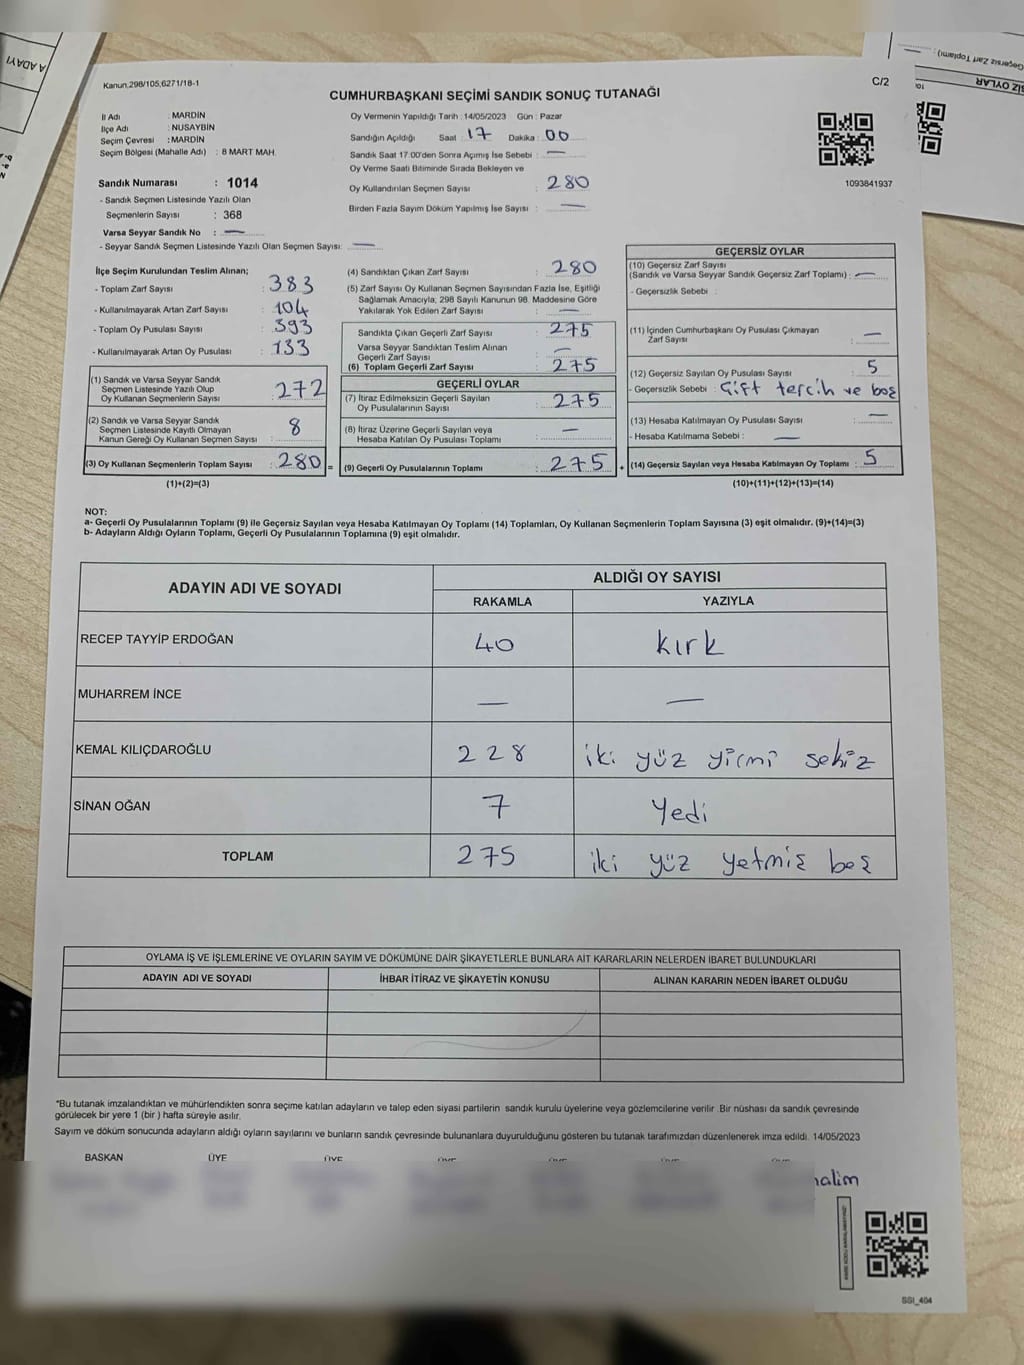 A ADAYI
Geçersiz Zarf Toplamı) :
SİZ OYLAR
Kanun,298/105;6271/18-1
C/2
CUMHURBAŞKANI SEÇİMİ SANDIK SONUÇ TUTANAĞI
İl Adı : MARDİN
İlçe Adı : NUSAYBİN
Seçim Çevresi : MARDİN
Seçim Bölgesi (Mahalle Adı) : 8 MART MAH.
Sandık Numarası : 1014
- Sandık Seçmen Listesinde Yazılı Olan
Seçmenlerin Sayısı : 368
Varsa Seyyar Sandık No : —
- Seyyar Sandık Seçmen Listesinde Yazılı Olan Seçmen Sayısı: —
Oy Vermenin Yapıldığı Tarih :14/05/2023 Gün : Pazar
Sandığın Açıldığı Saat : 17 Dakika : 00
Sandık Saat 17:00'den Sonra Açımış İse Sebebi : —
Oy Verme Saati Bitiminde Sırada Bekleyen ve
Oy Kullandırılan Seçmen Sayısı : 280
Birden Fazla Sayım Döküm Yapılmış İse Sayısı : —
1093841937
İlçe Seçim Kurulundan Teslim Alınan;
- Toplam Zarf Sayısı : 383
- Kullanılmayarak Artan Zarf Sayısı : 104
- Toplam Oy Pusulası Sayısı : 393
- Kullanılmayarak Artan Oy Pusulası : 133
(1) Sandık ve Varsa Seyyar Sandık
Seçmen Listesinde Yazılı Olup
Oy Kullanan Seçmenlerin Sayısı : 272
(2) Sandık ve Varsa Seyyar Sandık
Seçmen Listesinde Kayıtlı Olmayan
Kanun Gereği Oy Kullanan Seçmen Sayısı : 8
(3) Oy Kullanan Seçmenlerin Toplam Sayısı : 280 =
(1)+(2)=(3)
(4) Sandıktan Çıkan Zarf Sayısı : 280
(5) Zarf Sayısı Oy Kullanan Seçmen Sayısından Fazla İse, Eşitliği
Sağlamak Amacıyla, 298 Sayılı Kanunun 98. Maddesine Göre
Yakılarak Yok Edilen Zarf Sayısı : —
Sandıkta Çıkan Geçerli Zarf Sayısı : 275
Varsa Seyyar Sandıktan Teslim Alınan
Geçerli Zarf Sayısı : —
(6) Toplam Geçerli Zarf Sayısı : 275
GEÇERLİ OYLAR
(7) İtiraz Edilmeksizin Geçerli Sayılan
Oy Pusulalarının Sayısı : 275
(8) İtiraz Üzerine Geçerli Sayılan veya
Hesaba Katılan Oy Pusulası Toplamı : —
(9) Geçerli Oy Pusulalarının Toplamı : 275 +
GEÇERSİZ OYLAR
(10) Geçersiz Zarf Sayısı
(Sandık ve Varsa Seyyar Sandık Geçersiz Zarf Toplamı) : —
- Geçersizlik Sebebi :
(11) İçinden Cumhurbaşkanı Oy Pusulası Çıkmayan
Zarf Sayısı : —
(12) Geçersiz Sayılan Oy Pusulası Sayısı : 5
- Geçersizlik Sebebi : Çift tercih ve boş
(13) Hesaba Katılmayan Oy Pusulası Sayısı : —
- Hesaba Katılmama Sebebi : —
(14) Geçersiz Sayılan veya Hesaba Katılmayan Oy Toplamı : 5
(10)+(11)+(12)+(13)=(14)
NOT:
a- Geçerli Oy Pusulalarının Toplamı (9) ile Geçersiz Sayılan veya Hesaba Katılmayan Oy Toplamı (14) Toplamları, Oy Kullanan Seçmenlerin Toplam Sayısına (3) eşit olmalıdır. (9)+(14)=(3)
b- Adayların Aldığı Oyların Toplamı, Geçerli Oy Pusulalarının Toplamına (9) eşit olmalıdır.
ADAYIN ADI VE SOYADI
ALDIĞI OY SAYISI
RAKAMLA YAZIYLA
RECEP TAYYİP ERDOĞAN 40 kırk
MUHARREM İNCE — —
KEMAL KILIÇDAROĞLU 228 iki yüz yirmi sekiz
SİNAN OĞAN 7 Yedi
TOPLAM 275 iki yüz yetmiş beş
OYLAMA İŞ VE İŞLEMLERİNE VE OYLARIN SAYIM VE DÖKÜMÜNE DAİR ŞİKAYETLERLE BUNLARA AİT KARARLARIN NELERDEN İBARET BULUNDUKLARI
ADAYIN ADI VE SOYADI İHBAR İTİRAZ VE ŞİKAYETİN KONUSU ALINAN KARARIN NEDEN İBARET OLDUĞU
*Bu tutanak imzalandıktan ve mühürlendikten sonra seçime katılan adayların ve talep eden siyasi partilerin sandık kurulu üyelerine veya gözlemcilerine verilir .Bir nüshası da sandık çevresinde
görülecek bir yere 1 (bir ) hafta süreyle asılır.
Sayım ve döküm sonucunda adayların aldığı oyların sayılarını ve bunların sandık çevresinde bulunanlara duyurulduğunu gösteren bu tutanak tarafımızdan düzenlenerek imza edildi. 14/05/2023
BAŞKAN ÜYE ÜYE
halim
SSI_404